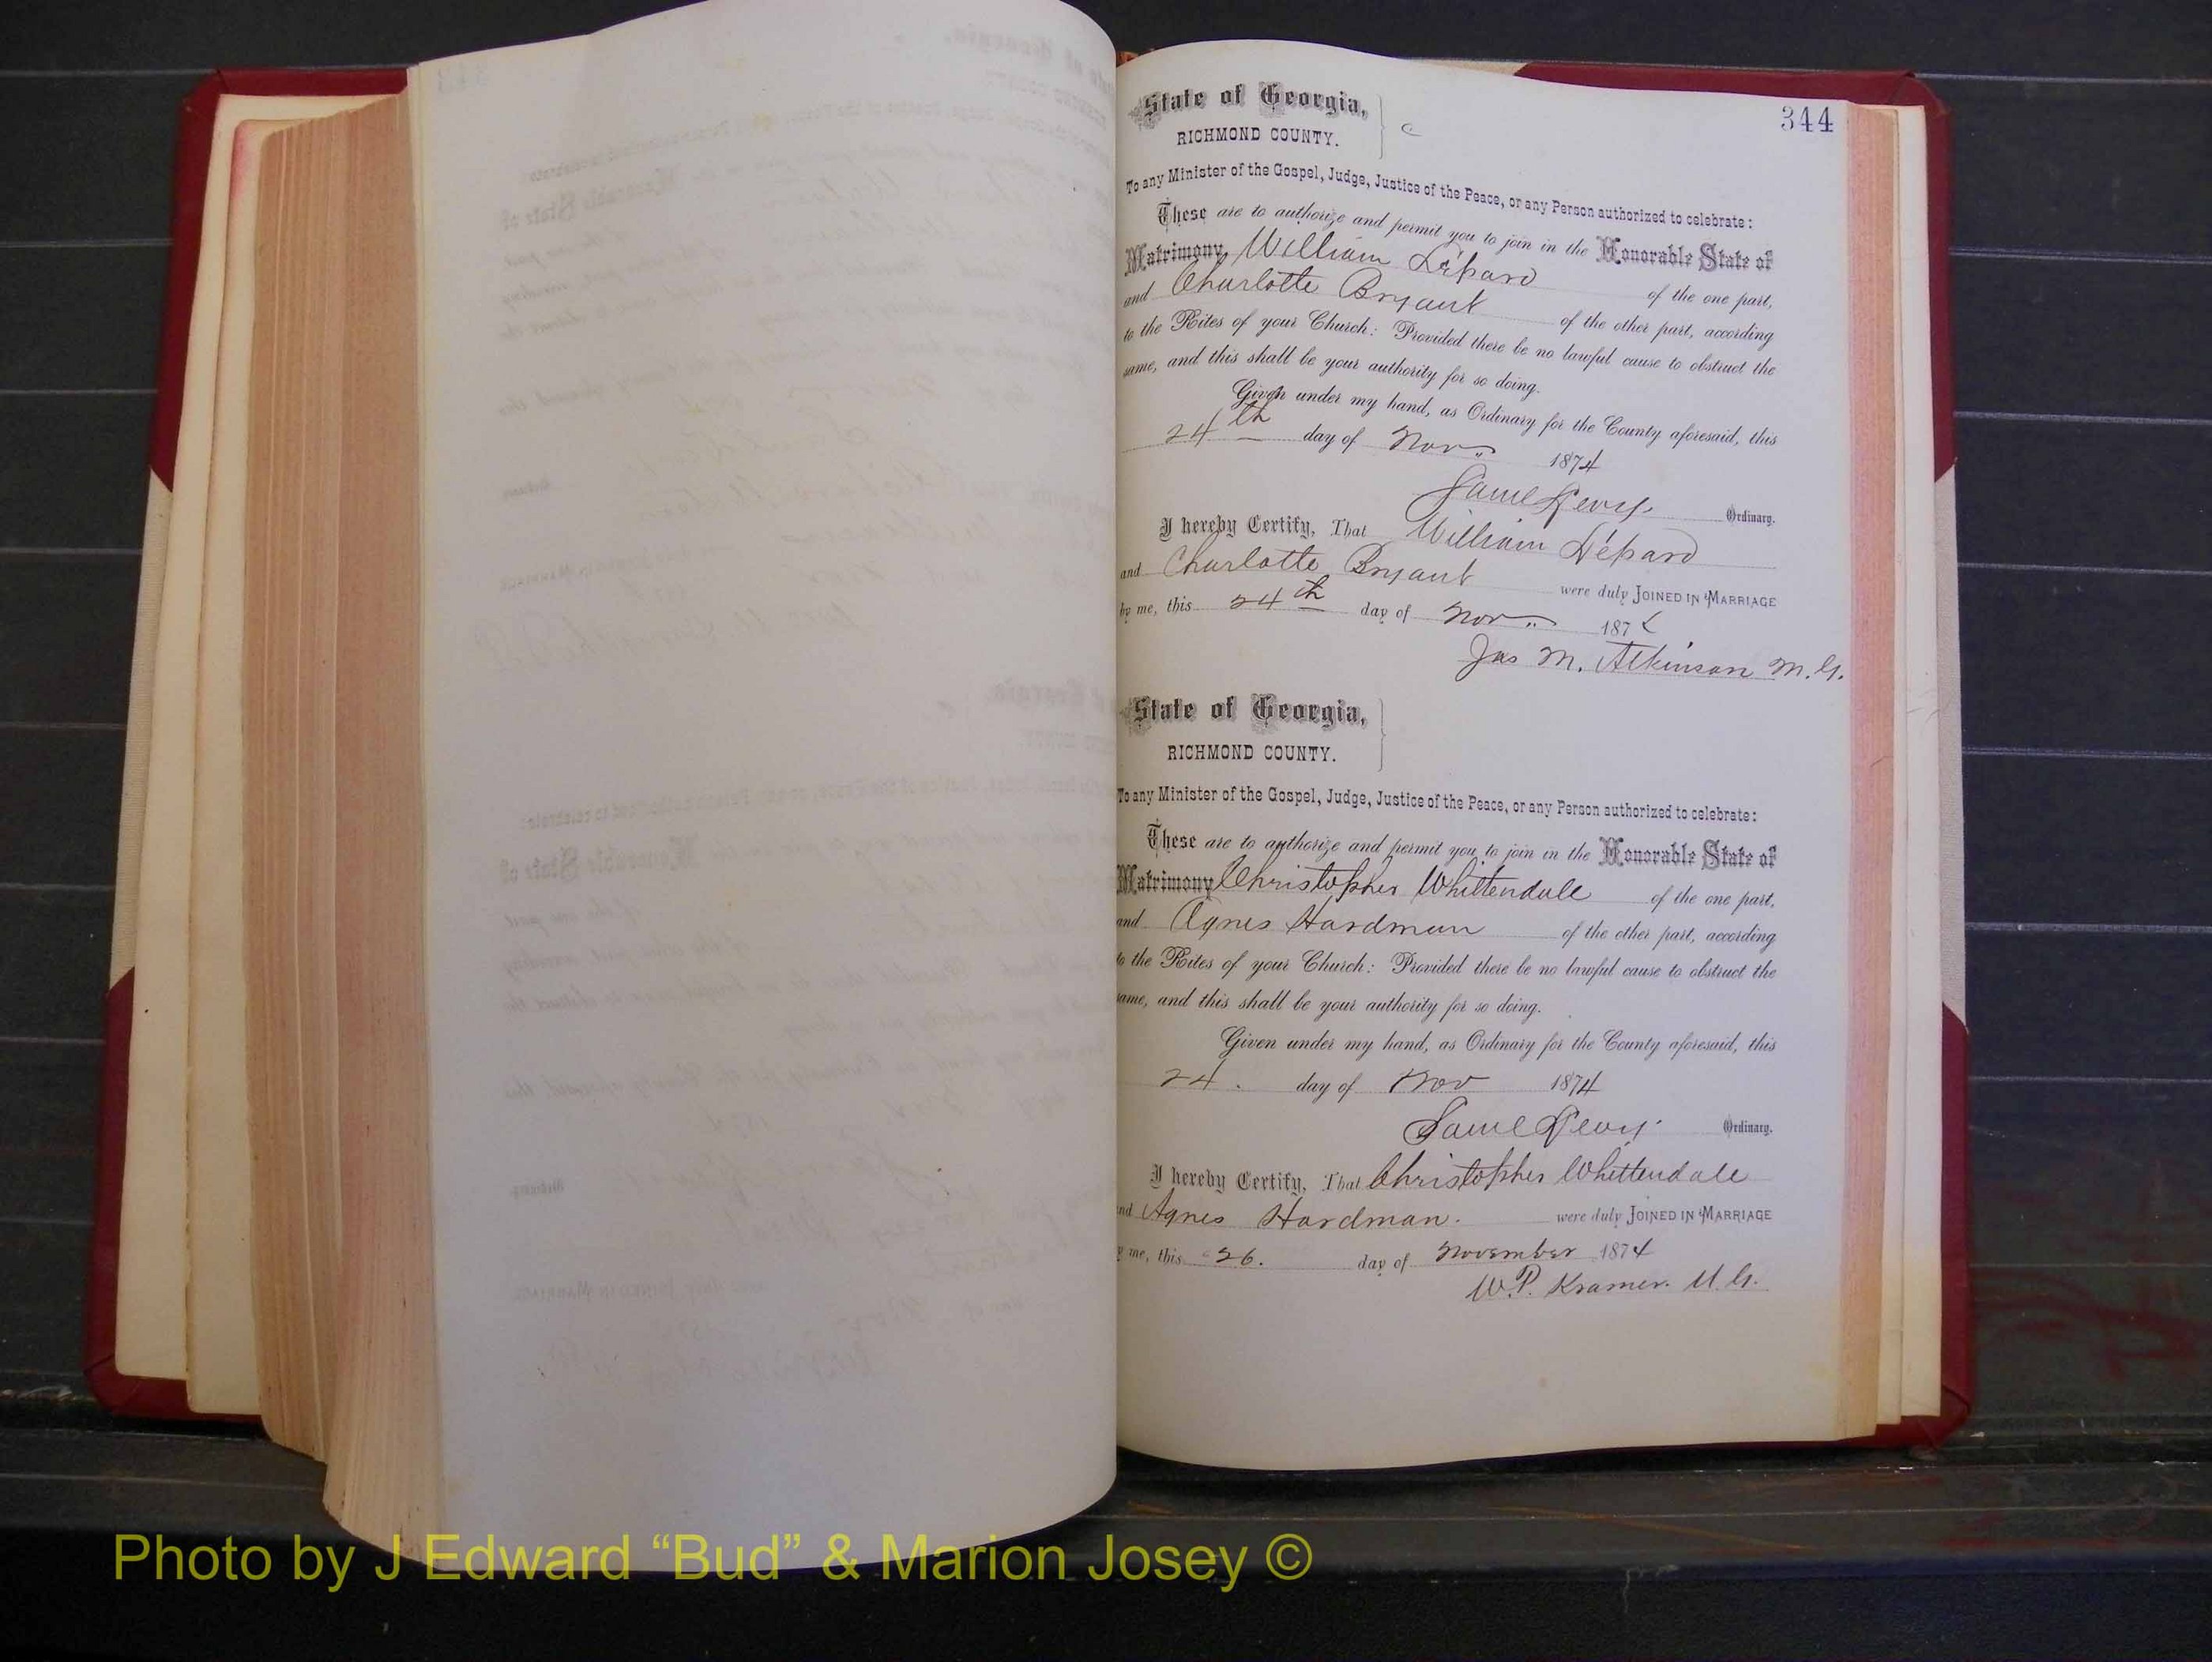 344
State of Georgia,
RICHMOND COUNTY.
C
To any Minister of the Gospel, Judge, Justice of the Peace, or any Person authorized to celebrate:
These are to authorize and permit you to join in the Honorable State of
Matrimony William Lépard of the one part,
and Charlotte Bryant of the other part, according
to the Rites of your Church: Provided there be no lawful cause to obstruct the
same, and this shall be your authority for so doing.
Given under my hand, as Ordinary for the County aforesaid, this
24th day of Nov. 1874
Saml Levy Ordinary.
I hereby Certify, That William Lépard
and Charlotte Bryant were duly JOINED IN MARRIAGE
by me, this 24th day of Nov. 1874
Jas M. Atkinson M.G.
State of Georgia,
RICHMOND COUNTY.
To any Minister of the Gospel, Judge, Justice of the Peace, or any Person authorized to celebrate:
These are to authorize and permit you to join in the Honorable State of
Matrimony Christopher Whittendale of the one part,
and Agnes Hardman of the other part, according
to the Rites of your Church: Provided there be no lawful cause to obstruct the
same, and this shall be your authority for so doing.
Given under my hand, as Ordinary for the County aforesaid, this
24. day of Nov 1874
Saml Levy. Ordinary.
I hereby Certify, That Christopher Whittendale
and Agnes Hardman. were duly JOINED IN MARRIAGE
by me, this 26. day of November 1874
W.P. Kramer. M.G.
Photo by J Edward “Bud” & Marion Josey ©